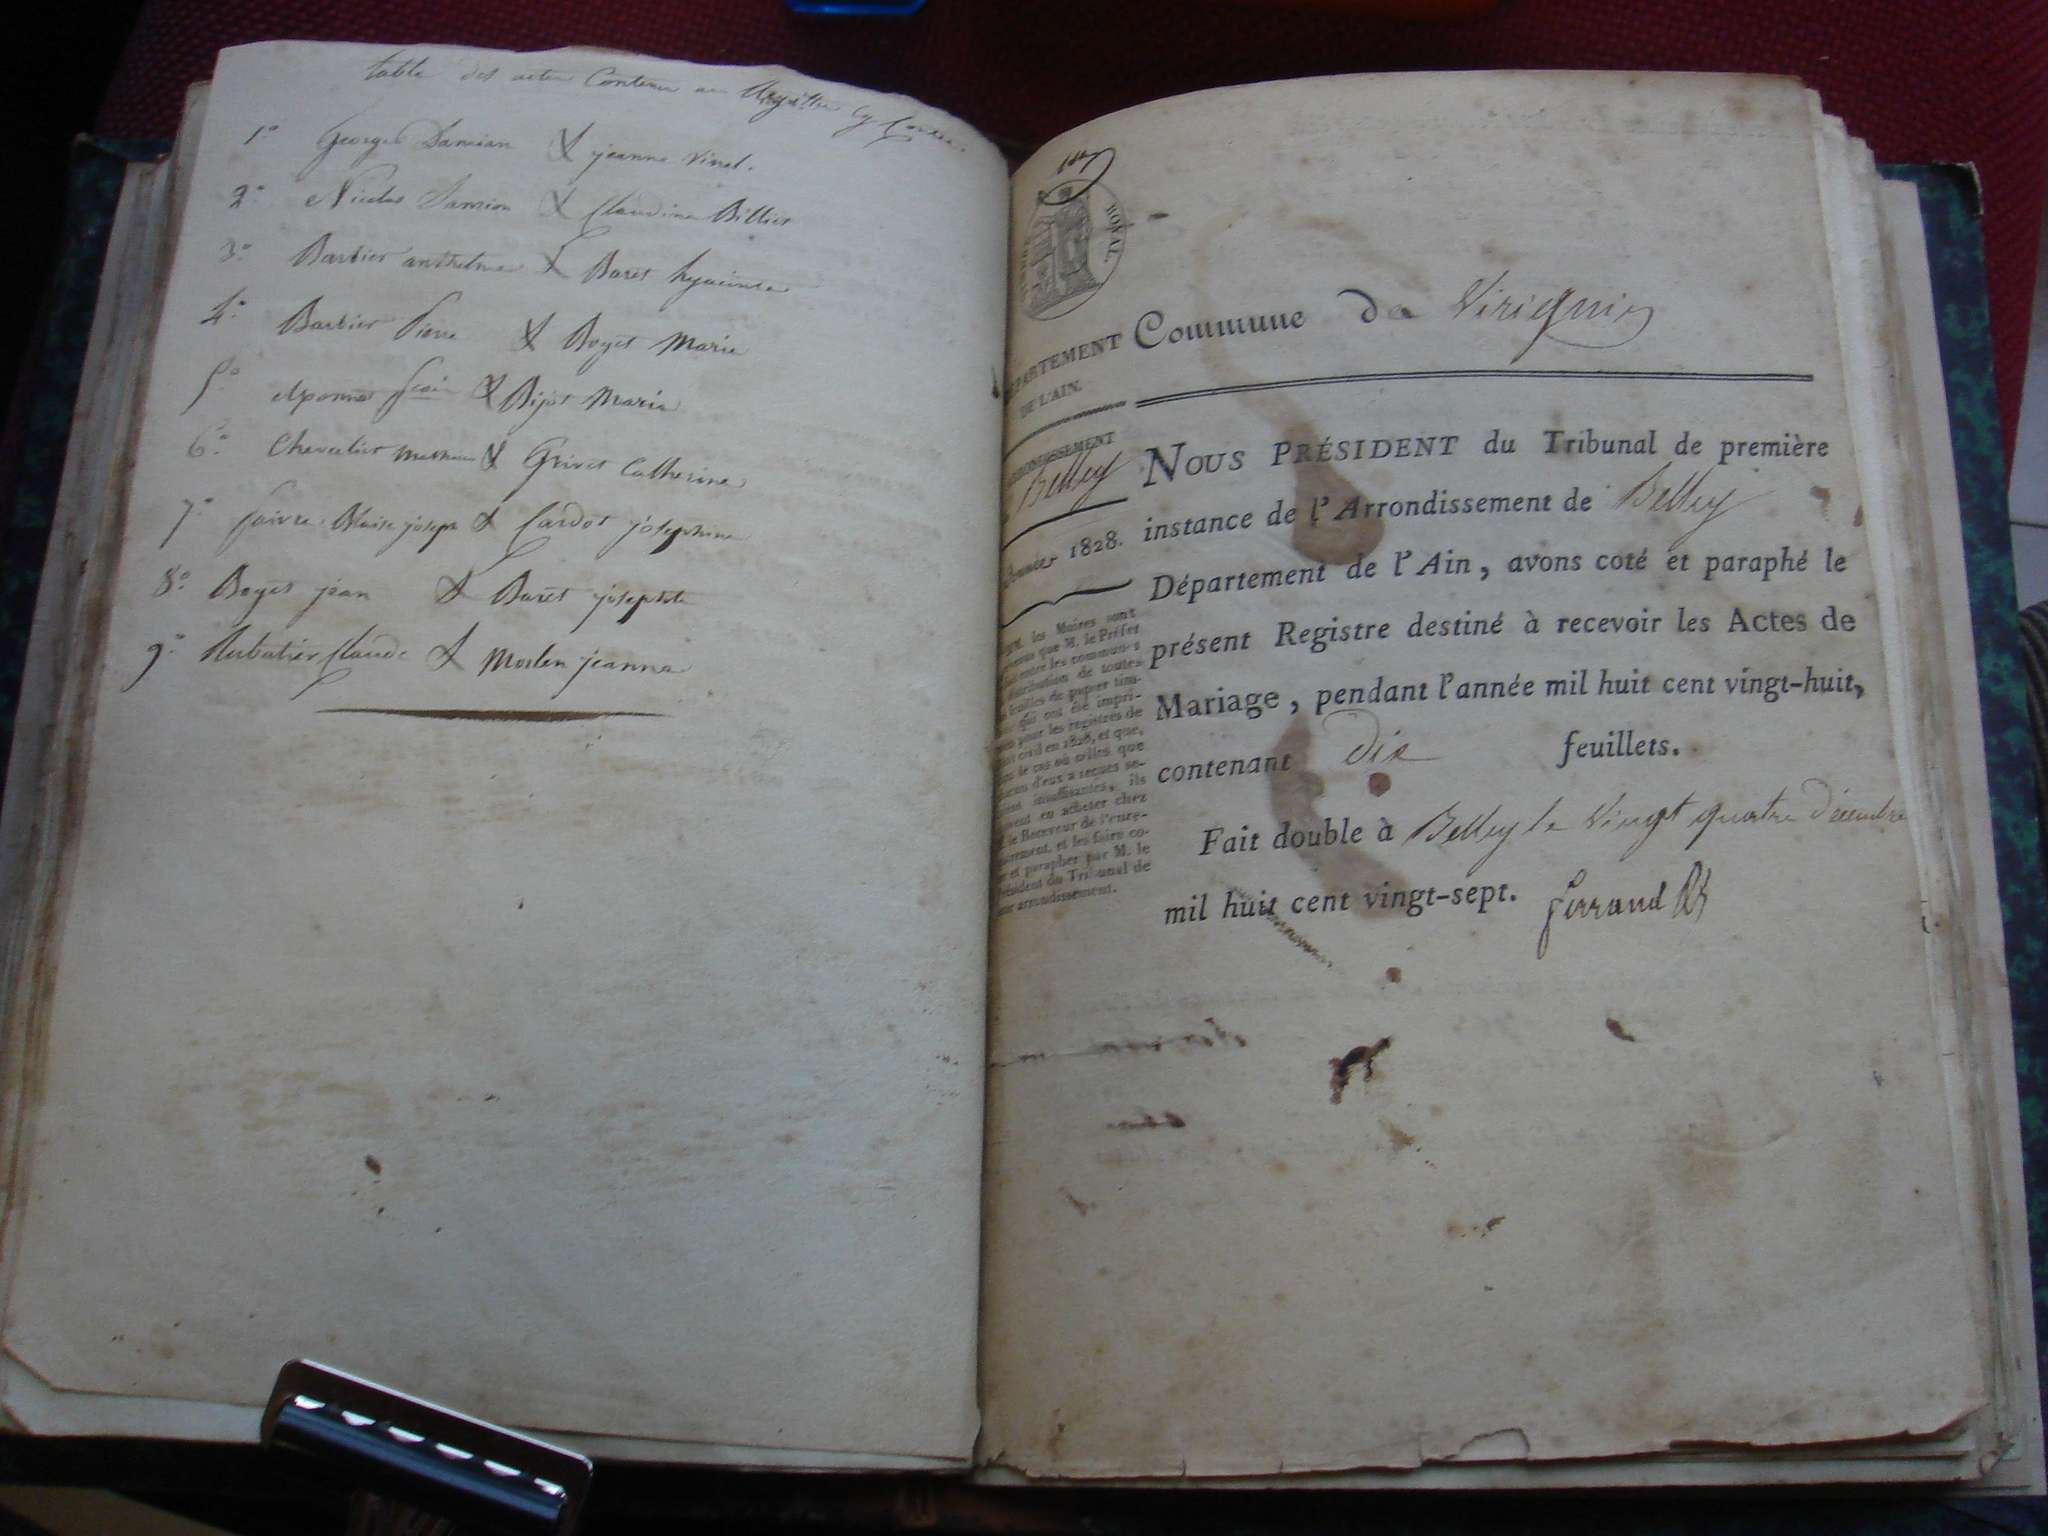 table des actes Contenu au Registre cy Contre.
1° Georges Damian & jeanne vinet.
2° Nicolas Damian & Claudine Billier
3° Barbier anthelme & Baret hyacinte
4° Barbier Pierre & Boget Marie
5° jean & Bijot Marie
6° Chevalier Mathieu & Grivet Catherine
7° faivre Blaise joseph & Cardot josephine
8° Boget jean & Baret josephte
9° Claude & jeanne
ROYAL.
DÉPARTEMENT
DE L'AIN.
ARRONDISSEMENT
Belley
Année 1828.
les Maires sont
que M. le Préfet
les communes
distribution de toutes
feuilles de papier tim-
qui ont été impri-
pour les registres de
civil en 1828, et que,
le cas où celles que
d'eux a reçues se-
insuffisantes, ils
en acheter chez
le Receveur de l'enre-
et les faire co-
et parapher par M. le
Président du Tribunal de
arrondissement.
Commune de Virignin
NOUS PRÉSIDENT du Tribunal de première
instance de l'Arrondissement de Belley
Département de l'Ain, avons coté et paraphé le
présent Registre destiné à recevoir les Actes de
Mariage, pendant l'année mil huit cent vingt-huit,
contenant dix feuillets.
Fait double à Belley le Vingt quatre Décembre
mil huit cent vingt-sept. ferrand